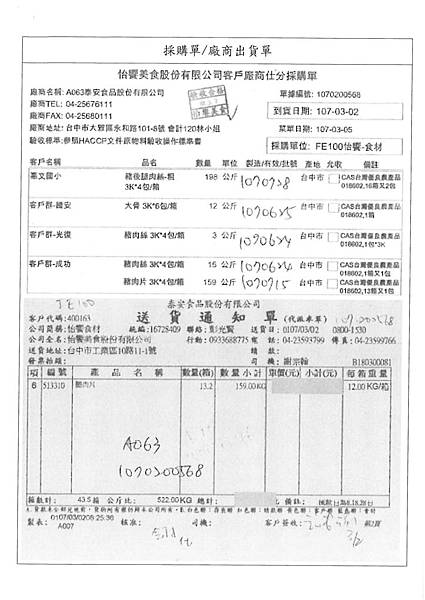 採購單/廠商出貨單
怡饗美食股份有限公司客戶廠商仕分採購單
廠商名稱: A063泰安食品股份有限公司
單據編號: 1070200568
廠商TEL: 04-25676111
到貨日期: 107-03-02
廠商FAX: 04-25680111
菜單日期: 107-03-05
廠商地址: 台中市大雅區永和路101-8號 會計120林小姐
驗收標準:參照HACCP文件原物料驗收操作標準書
採購單位: FE100怡饗-食材
驗收合格
怡饗美食
客戶名稱 品名 數量 單位 製造/有效/批號 產地 允收 備註
豬後腿肉絲-粗 3K*4包/箱 198 公斤 1070728 台中市 CAS台灣優良農產品 018602,16箱又2包
客戶群-國安 大骨 3K*6包/箱 12 公斤 1070625 台中市 CAS台灣優良農產品 018602,1箱
客戶群-光復 豬肉絲 3K*4包/箱 3 公斤 1070624 台中市 CAS台灣優良農產品 018602,1包*3K
客戶群-成功 豬肉絲 3K*4包/箱 15 公斤 1070624 台中市 CAS台灣優良農產品 018602,1箱又1包
豬肉片 3K*4包/箱 159 公斤 1070715 台中市 CAS台灣優良農產品 018602,13箱又1包
泰安食品股份有限公司
送貨通知單
客戶代號: 400163
公司簡稱: 怡饗食材 統編: 16728409 聯絡: 彭光賢 送貨日: 0107/03/02 0800-1530
公司全名: 怡饗美食股份有限公司 行動: 0933688775 電話: 04-23593799 傳真: 04-23599766
送貨地址: 台中市工業區10路11-1號
發票抬頭: 司機: 謝宗翰 B180300081
項 編號 產品名稱 數量(箱) 數量小計 單價(元) 小計(元) 每箱重量
6 513310 豬肉片 13.2 159.00KG 12.00 KG/箱
A063
1070200568
箱數計: 43.5 箱 公斤比: 522.00KG 總計: 元 備註:
製表: 0107/03/0208:25:36 核准: 司機: 客戶簽收: 第2頁
A007